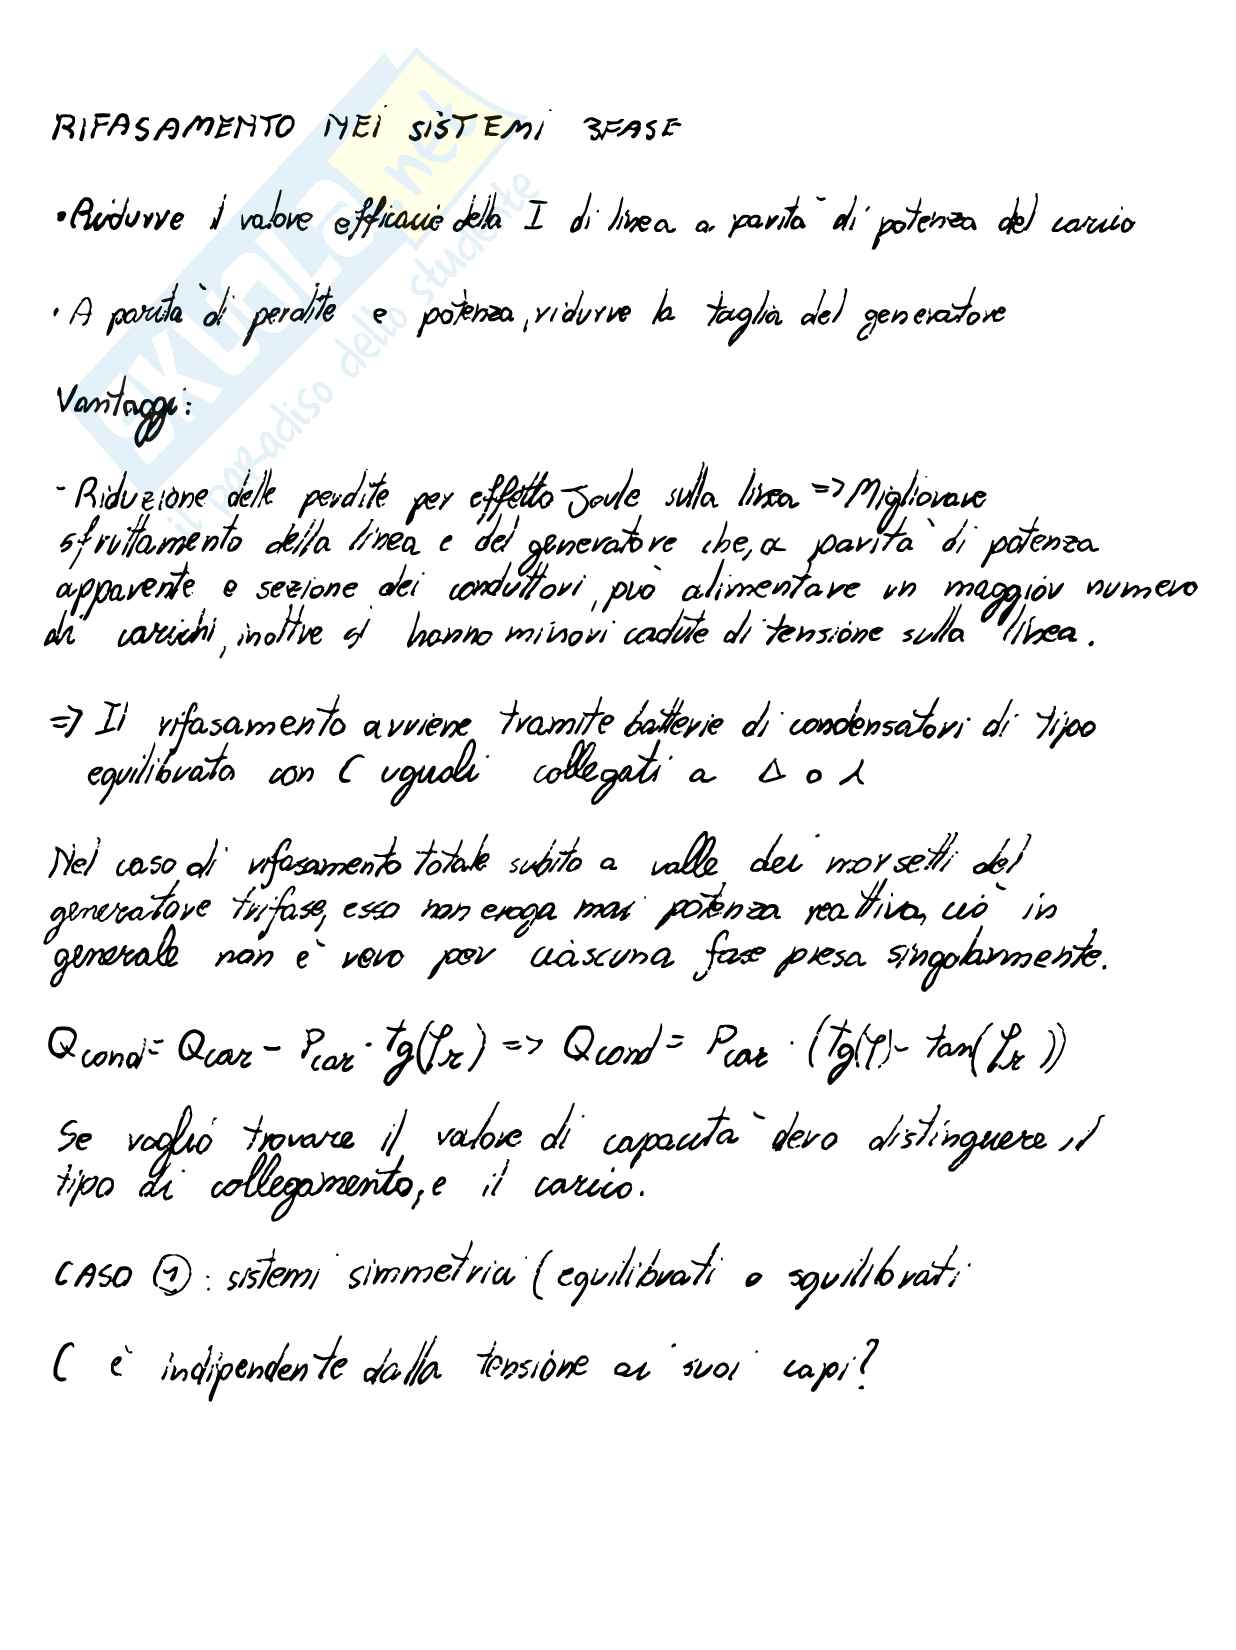 RIFASAMENTO NEI SISTEMI 3FASE
• Ridurre il valore efficacie della I di linea a parità di potenza del carico
• A parità di perdite e potenza, ridurre la taglia del generatore
Vantaggi:
- Riduzione delle perdite per effetto Joule sulla linea => Migliorare
sfruttamento della linea e del generatore che, a parità di potenza
apparente e sezione dei conduttori, può alimentare un maggior numero
di carichi, inoltre si hanno minori cadute di tensione sulla linea.
=> Il rifasamento avviene tramite batterie di condensatori di tipo
equilibrata con C uguali collegati a Δ o λ
Nel caso di rifasamento totale subito a valle dei morsetti del
generatore trifase, esso non eroga mai potenza reattiva, ciò in
generale non è vero per ciascuna fase presa singolarmente.
Qcond = Qcar - Pcar · tg(φr) => Qcond = Pcar · (tg(φ) - tan(φr))
Se voglio trovare il valore di capacità devo distinguere il
tipo di collegamento, e il carico.
CASO ①: sistemi simmetrici (equilibrati o squilibrati
C è indipendente dalla tensione ai suoi capi?
SKUOLA.net
il paradiso dello studente